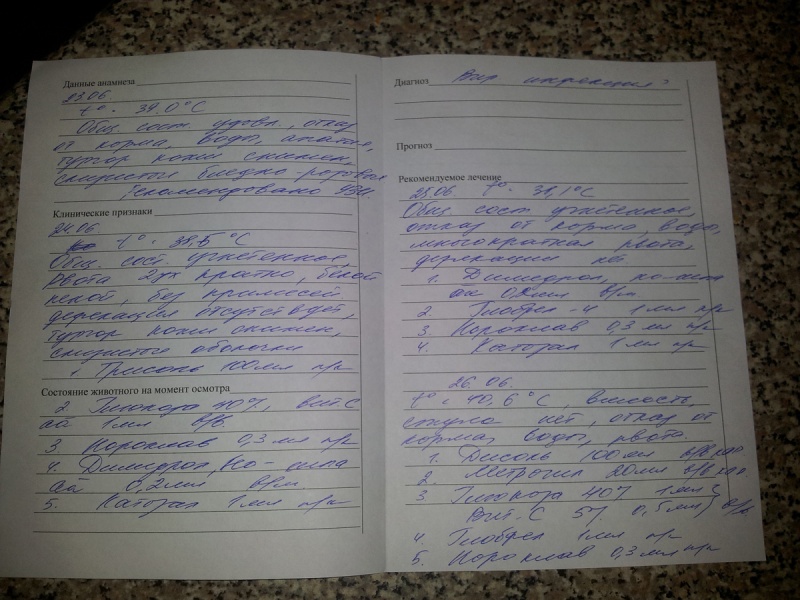 Данные анамнеза
23.06
t° - 39.0°C
Общ. сост. удовл., отказ
от корма, воды, апатия,
тургор кожи снижен,
слизистые бледно-розовая
Рекомендовано УЗИ.
Клинические признаки
24.06
t° - 38,5 °C
Общ. сост. угнетенное,
рвота 2ух кратно, белой
пеной, без примесей
дефекация отсутствует,
тургор кожи снижен,
слизистые оболочки
1 Трисоль 100мл п/к
Состояние животного на момент осмотра
2 Глюкоза 40%, вит. С
аа 1мл в/в.
3. Нороклав 0,3 мл п/к
4. Димедрол, но-шпа
аа 0,2мл в/м.
5. Катозал 1мл п/к
Диагноз Вир инфекция?
Прогноз
Рекомендуемое лечение
25.06 t° - 39,1°C
Общ. сост угнетенное,
отказ от корма, воды,
многократная рвота,
дефекации нет
1. Димедрол, но-шпа
аа 0,2мл в/м.
2. Глобфел-4 1мл п/к
3. Нороклав 0,3 мл п/к
4. Катозал 1мл п/к
26.06.
t° - 40,6°C, вялость,
стула нет, отказ от
корма, воды, рвота.
1. Дисоль 100мл в/в кап.
2. Метрогил 20мл в/в кап.
3. Глюкоза 40% 1мл
Вит. С 5% 0,5мл) в/в
4. Глобфел 1мл п/к
5. Нороклав 0,3мл п/к